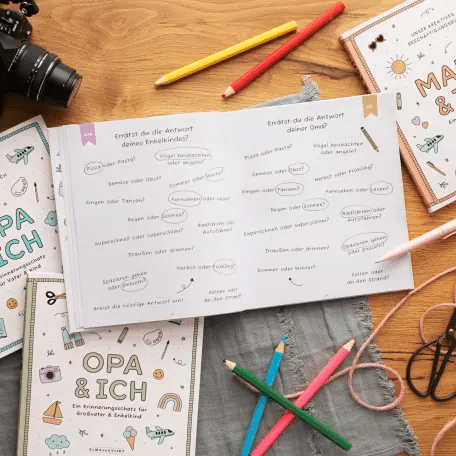 Errätst du die Antwort
deines Enkelkindes?
Pizza oder Pasta?
Vögel beobachten
oder angeln?
Gemüse oder Obst?
Sommer oder Winter?
Singen oder Tanzen?
Fernsehen oder Lesen?
Regen oder Schnee?
Superschnell oder superschlau?
Radfahren oder
Autofahren?
Draußen oder drinnen?
Spazieren gehen
oder puzzeln?
Herbst oder Frühling?
Kreist die richtige Antwort ein!
Zelten oder
an den Strand?
Errätst du die Antwort
deiner Oma?
Pizza oder Pasta?
Vögel beobachten
oder angeln?
Gemüse oder Obst?
Herbst oder Frühling?
Singen oder Tanzen?
Fernsehen oder Lesen?
Regen oder Schnee?
Radfahren oder
Autofahren?
Superschnell oder superschlau?
Draußen oder drinnen?
Spazieren gehen
oder puzzeln?
Sommer oder Winter?
Zelten oder
an den Strand?
UNSER KREATIVES
MA
&
PA
& ICH
Ein Erinnerungsschatz
für Vater & Kind
OPA
& ICH
Ein Erinnerungsschatz für
Großvater & Enkelkind